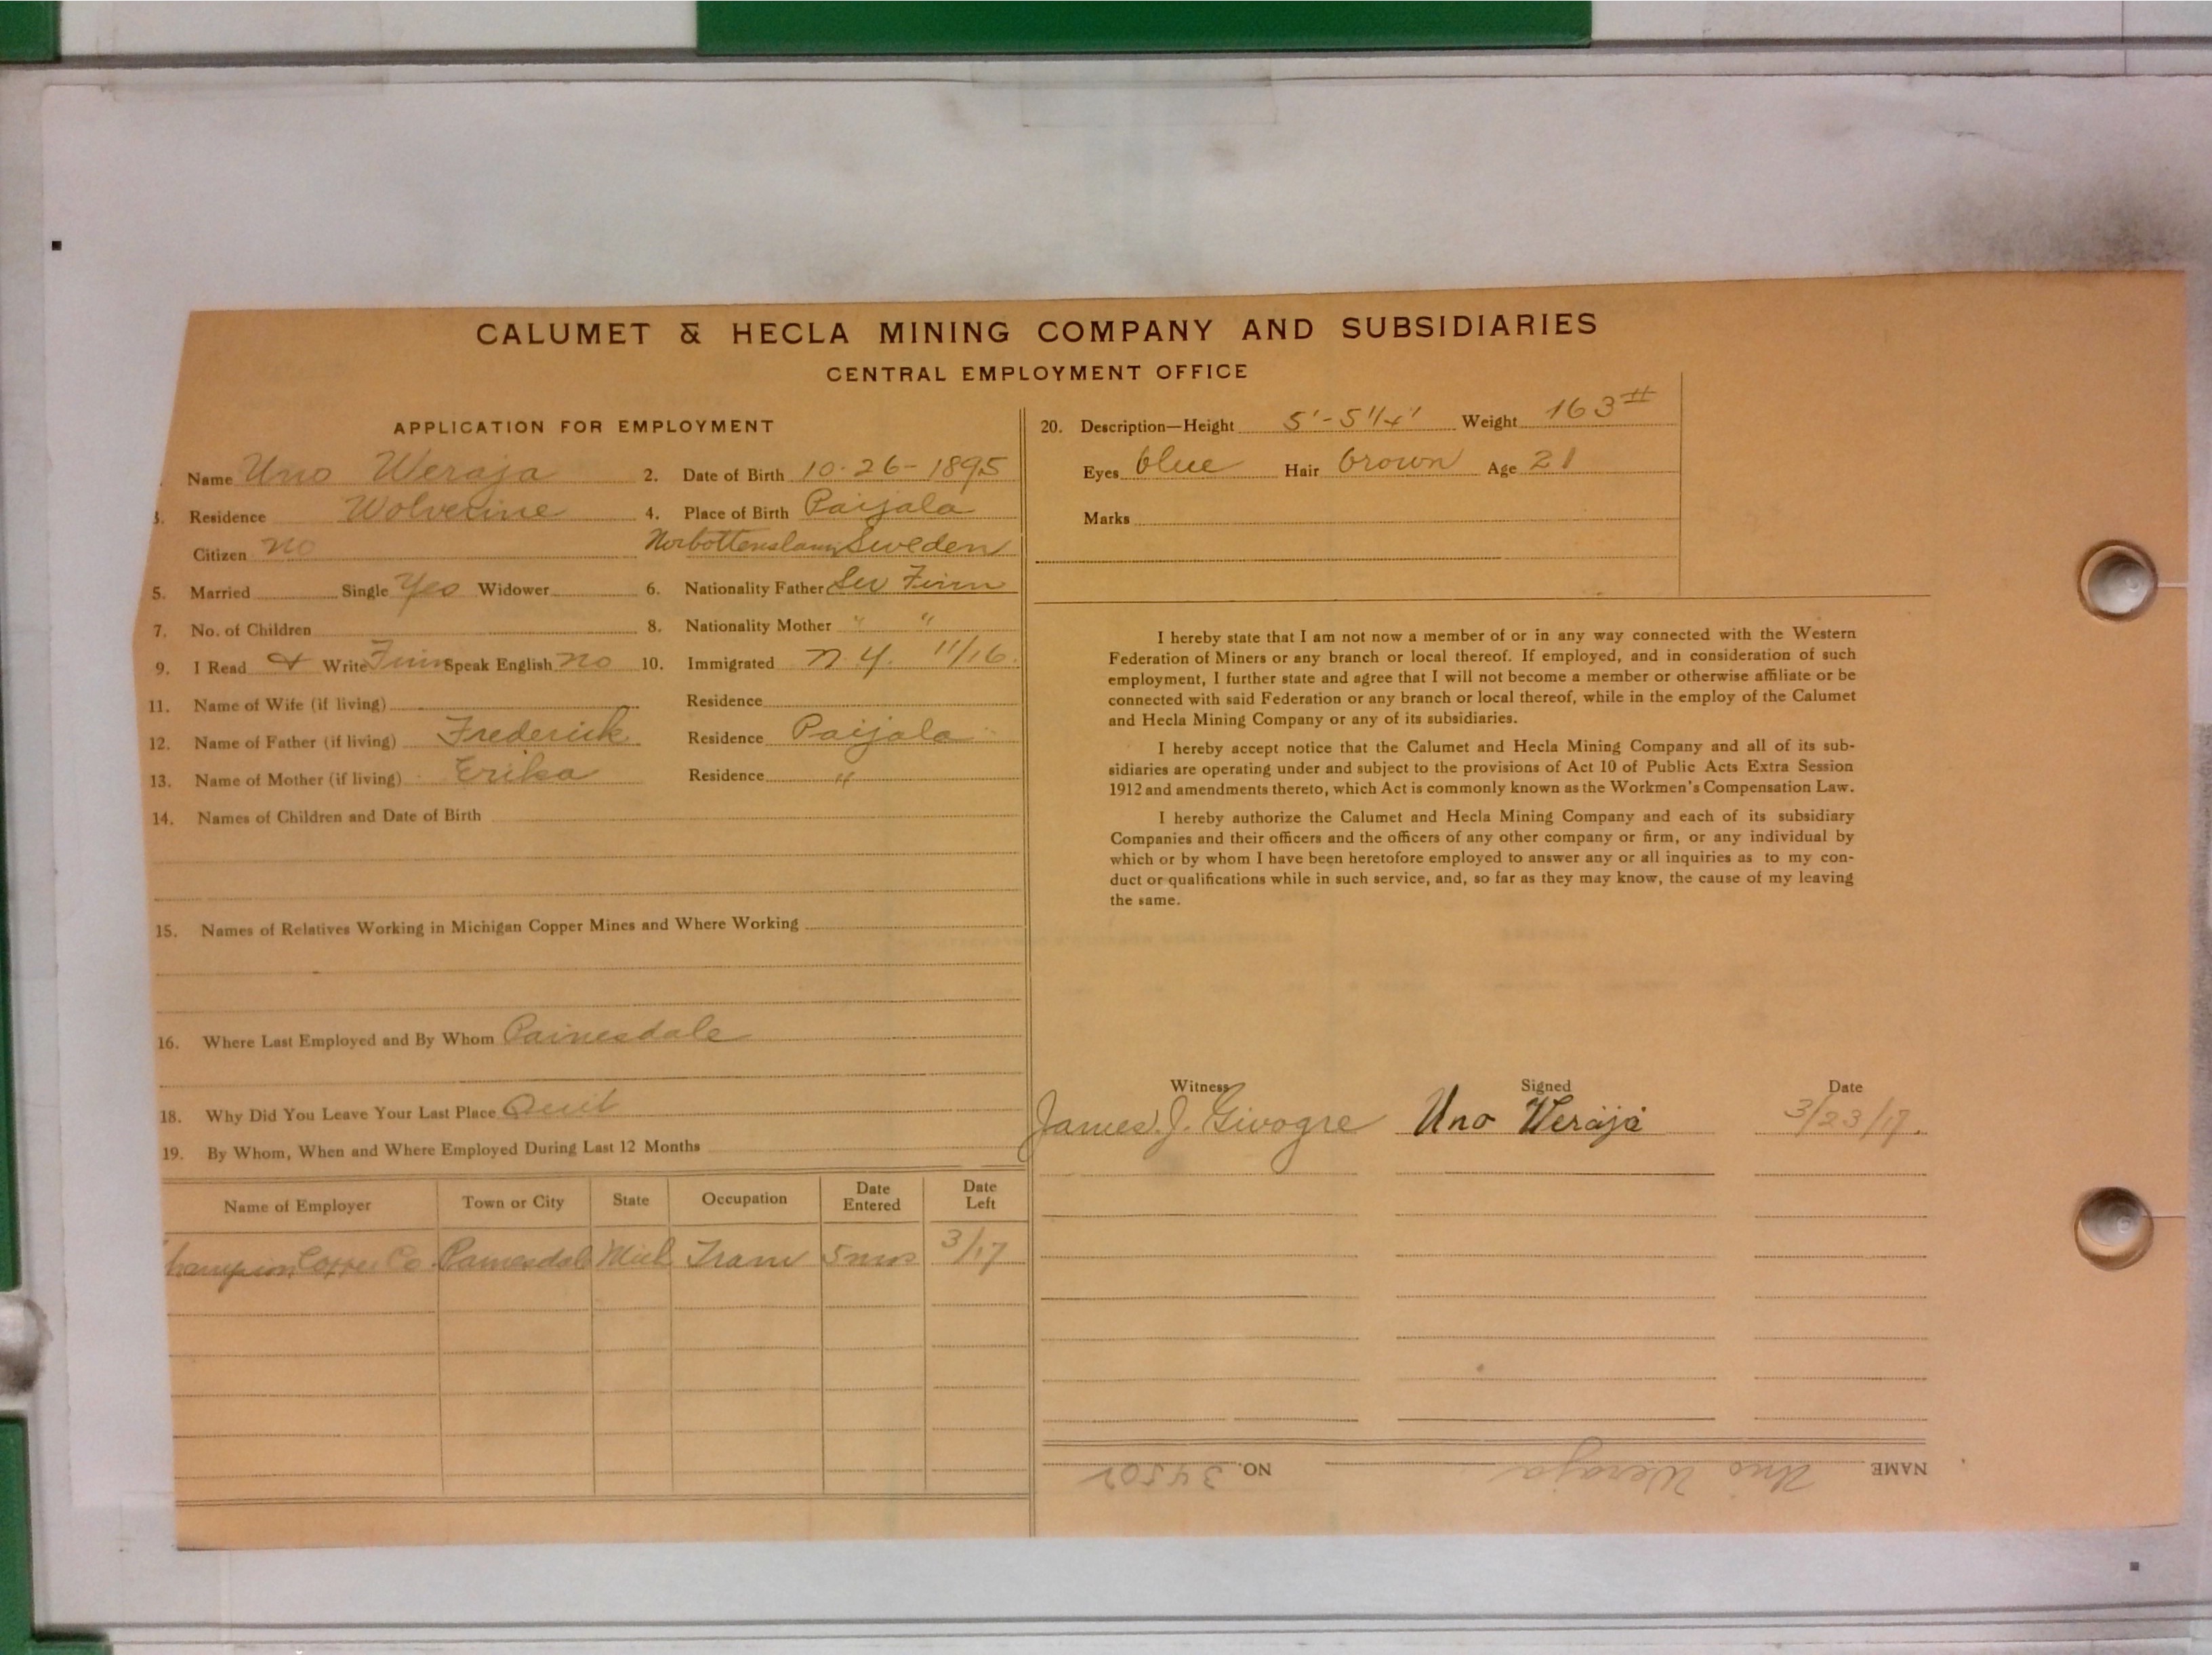 CALUMET & HECLA MINING COMPANY AND SUBSIDIARIES
CENTRAL EMPLOYMENT OFFICE
APPLICATION FOR EMPLOYMENT
Name Uno Weraja 2. Date of Birth 10-26-1895
3. Residence Wolverine 4. Place of Birth Paijala
Citizen no Norbottenslann, Sweden
5. Married Single Yes Widower 6. Nationality Father Sw Finn
7. No. of Children 8. Nationality Mother " "
9. I Read & Write Finn Speak English no 10. Immigrated N.Y. 11/16.
11. Name of Wife (if living) Residence
12. Name of Father (if living) Frederick Residence Paijala
13. Name of Mother (if living) Erika Residence "
14. Names of Children and Date of Birth
15. Names of Relatives Working in Michigan Copper Mines and Where Working
16. Where Last Employed and By Whom Painesdale
18. Why Did You Leave Your Last Place Quit
19. By Whom, When and Where Employed During Last 12 Months
Name of Employer Town or City State Occupation Date Entered Date Left
hampion Copper Co. Painesdale Mich Tram 5 mos 3/17
20. Description—Height 5'-5 1/4" Weight 163#
Eyes blue Hair brown Age 21
Marks
I hereby state that I am not now a member of or in any way connected with the Western
Federation of Miners or any branch or local thereof. If employed, and in consideration of such
employment, I further state and agree that I will not become a member or otherwise affiliate or be
connected with said Federation or any branch or local thereof, while in the employ of the Calumet
and Hecla Mining Company or any of its subsidiaries.
I hereby accept notice that the Calumet and Hecla Mining Company and all of its sub-
sidiaries are operating under and subject to the provisions of Act 10 of Public Acts Extra Session
1912 and amendments thereto, which Act is commonly known as the Workmen's Compensation Law.
I hereby authorize the Calumet and Hecla Mining Company and each of its subsidiary
Companies and their officers and the officers of any other company or firm, or any individual by
which or by whom I have been heretofore employed to answer any or all inquiries as to my con-
duct or qualifications while in such service, and, so far as they may know, the cause of my leaving
the same.
Witness Signed Date
James J. Givogre Uno Weräjä 3/23/17.
NAME Uno Weraja NO. 34502